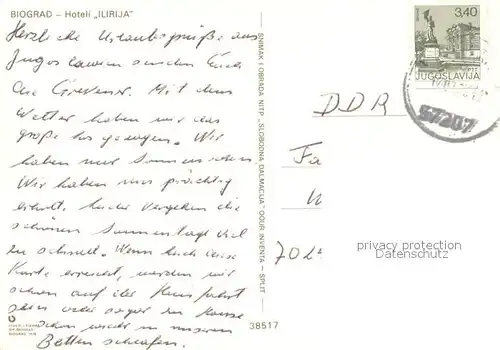 BIOGRAD – Hoteli „ILIRIJA"
Herzliche Urlaubsgrüße aus
Jugoslawien senden Euch
die Grevener. Mit dem
Wetter haben wir das
große Los gezogen. Wir
haben nur Sonnenschein.
Wir haben uns prächtig
erholt, leider vergehen die
schönen Sonnentage viel
zu schnell. Wenn Euch diese
Karte erreicht, werden wir
schon auf der Heimfahrt
sein oder sogar zu Hause
schon wieder in unseren
Betten schlafen.
SNIMAK I OBRADA NITP „SLOBODNA DALMACIJA" OOUR INVENTA – SPLIT
38517
3,40
SPLIT
JUGOSLAVIJA
57207
DDR
Fa
701
privacy protection
Datenschutz